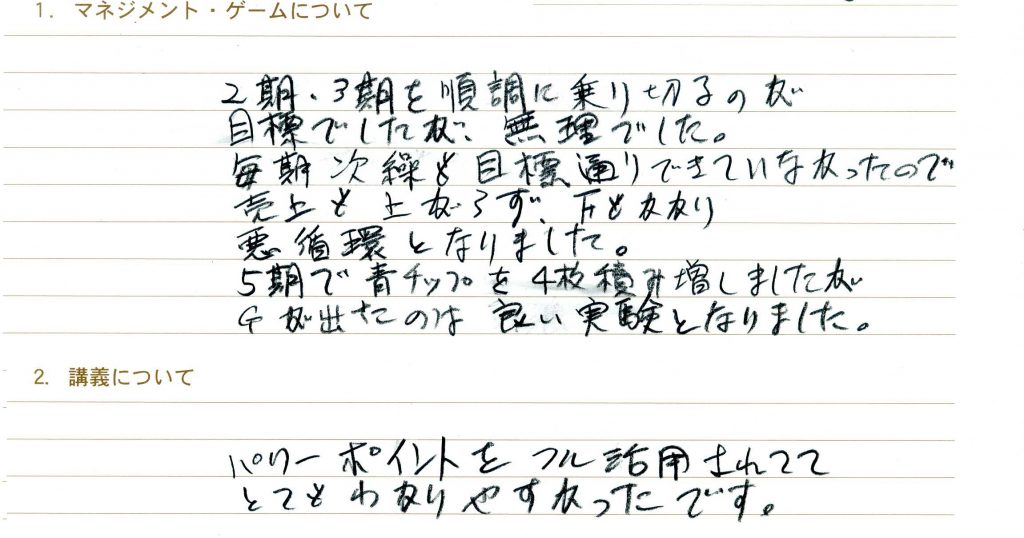 1. マネジメント・ゲームについて
2期・3期を順調に乗り切るのが
目標でしたが、無理でした。
毎期次繰も目標通りできていなかったので
売上も上がらず、Fもかかり
悪循環となりました。
5期で青チップを4枚積み増しましたが
Gが出せたのは良い実験となりました。
2. 講義について
パワーポイントをフル活用されてて
とてもわかりやすかったです。